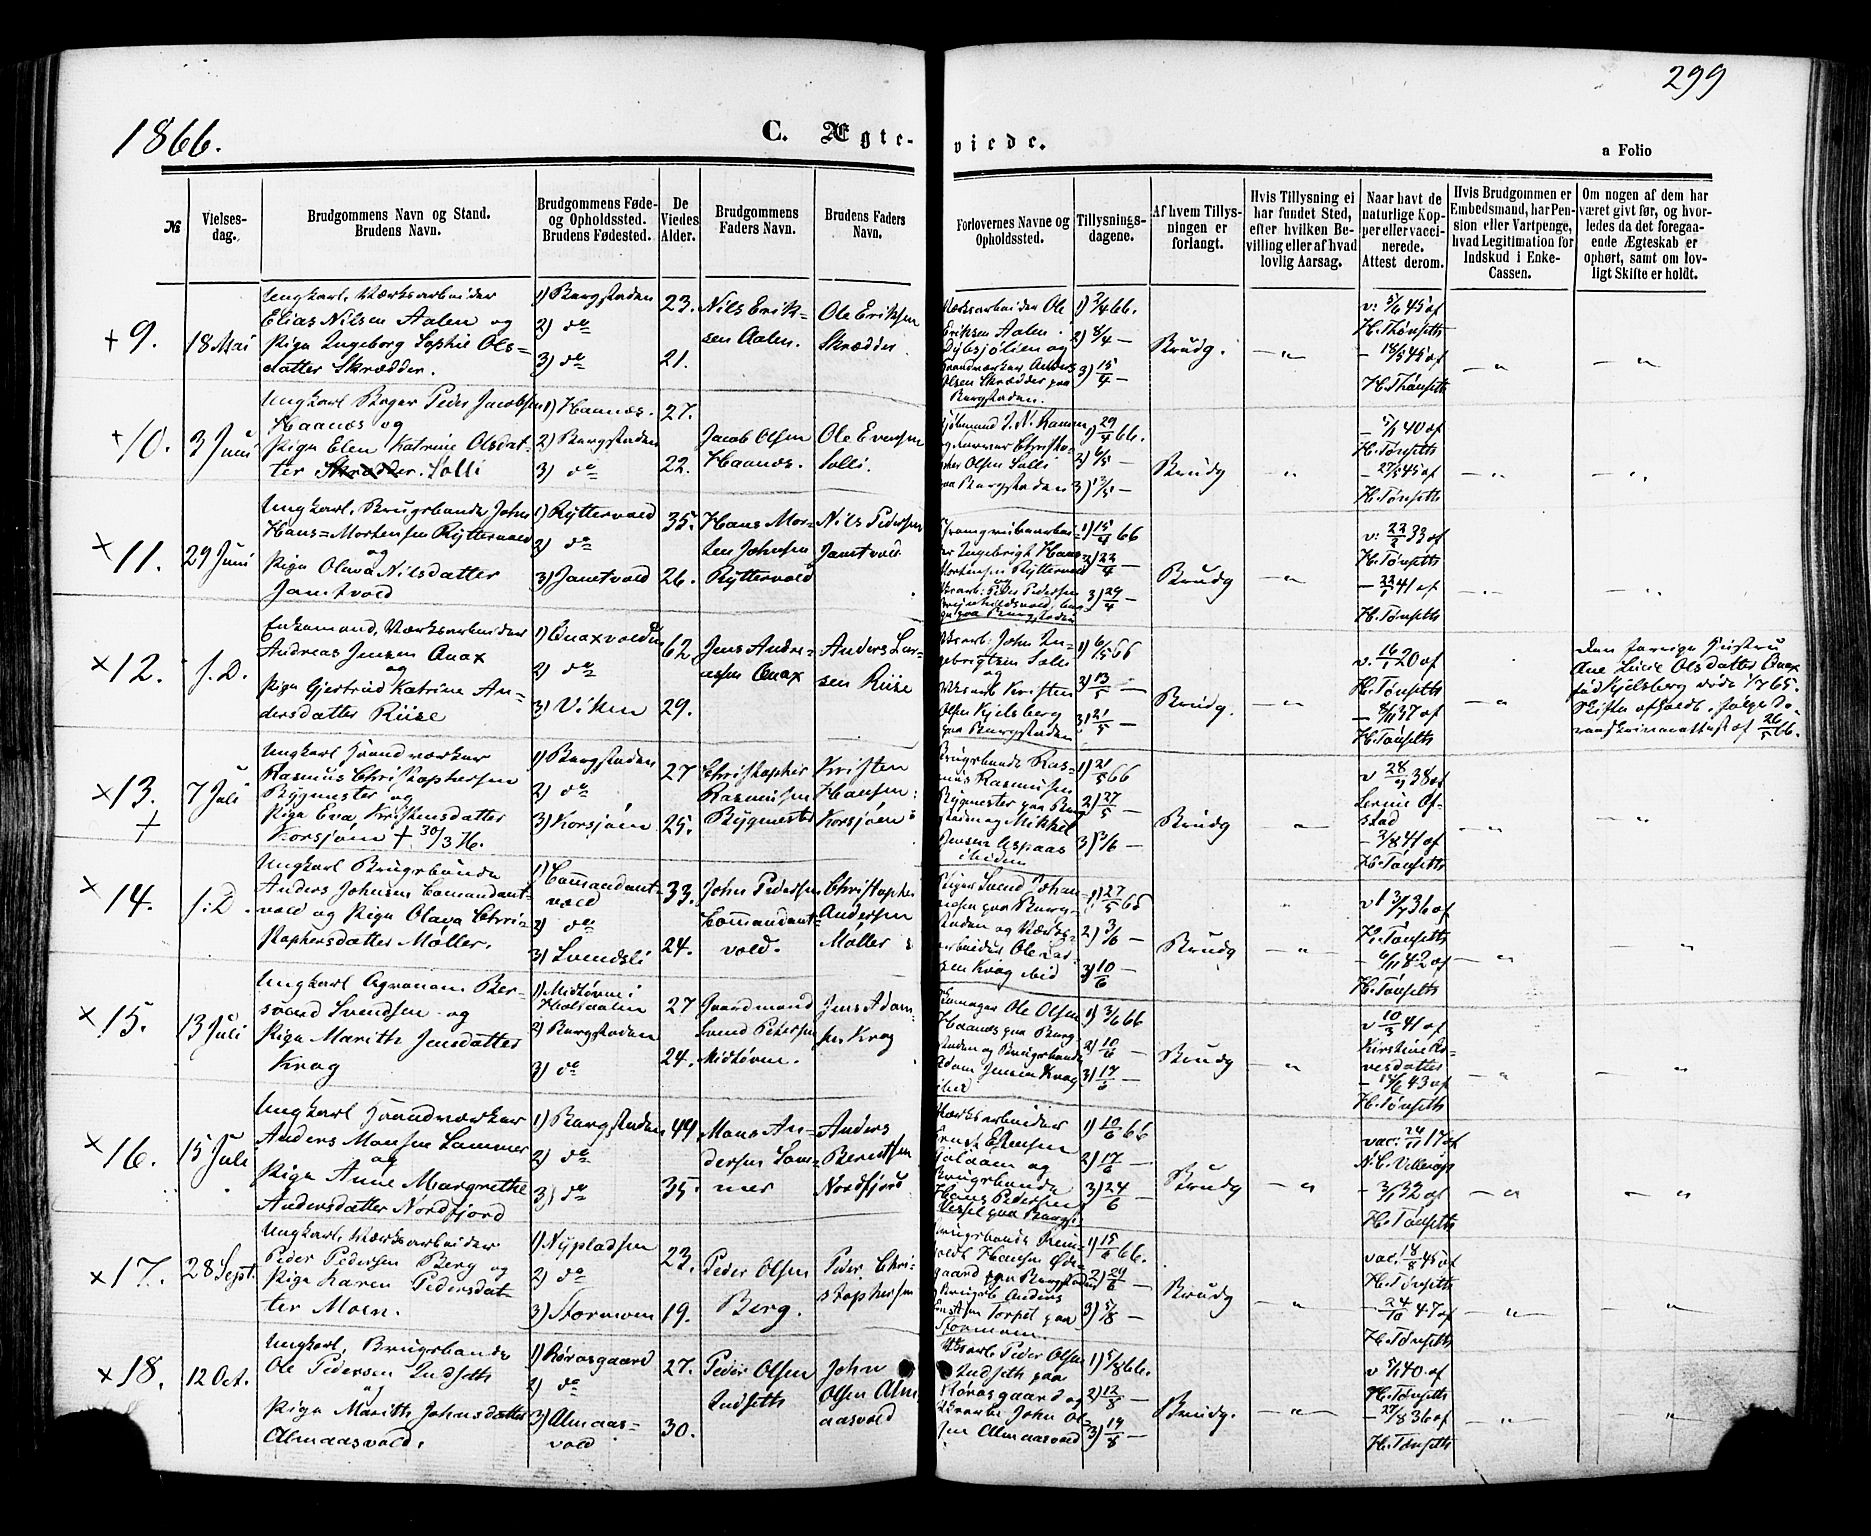 299
1866.
C. Ægte-
viede.
a Folio
№
Vielses-
dag.
Brudgommens Navn og Stand.
Brudens Navn.
Brudgommens Føde-
og Opholdssted.
Brudens Fødested.
De
Viedes
Alder.
Brudgommens
Faders Navn.
Brudens Faders
Navn.
Forlovernes Navne og
Opholdssted.
Tillysnings-
dagene.
Af hvem Tillys-
ningen er
forlangt.
Hvis Tillysning ei
har fundet Sted,
efter hvilken Be-
villing eller af hvad
lovlig Aarsag.
Naar havt de
naturlige Kop-
per eller vacci-
nerede.
Attest derom.
Hvis Brudgommen er
Embedsmand, har Pen-
sion eller Vartpenge,
hvad Legitimation for
Indskud i Enke-
Cassen.
Om nogen af dem har
været givt før, og hvor-
ledes da det foregaa-
ende Ægteskab er
ophørt, samt om lov-
ligt Skifte er holdt.
+ 9.
18 Mai
Ungkarl, Værksarbeider
Elias Nilsen Aalen og
Pige Ingeborg Sophie Ols-
datter Skrædder.
1) Bergstaden
2) do
3) do
23.
21.
Nils Erik-
sen Aalen.
Ole Eriksen
Skrædder.
Værksarbeider Ole
Eriksen Aalen
Dybsjølien og
Haandværker Anders
Olsen Skrædder paa
Bergstaden.
1) 2/4 66.
2) 8/4 —
3) 15/4 —
Brudg.
— " —
v: 5/6 45 af
H. Thønseth
— 18/5 45 af
H. Thønseth
+ 10.
3 Juni
Ungkarl Bager Peder Jacobsen
Haanæs og
Pige Elen Katrine Olsdat-
ter Skrædder. Solli
1) Haanæs.
2) Bergstaden
3) do
27.
22.
Jacob Olsen
Haanæs.
Ole Evensen
Solli.
Olsen Solli
paa Bergstaden
1) 29/4 66.
2) 6/5 —
3) 13/5 —
Brudg
"
5/1 40 af
H. Tønseth
— 27/5 45 af
H. Tønseth
x 11.
29 Juni
Ungkarl, Brugsbonde John
Hans=Mortensen Ryttervold
og
Pige Olava Nilsdatter
Jamtvold
1) Ryttervold
2) do
3) Jamtvold
35.
26.
Hans Mor-
ten Johnsen
Ryttervold
Nils Pedersen
Jamtvold
Ingebrigt Hans
Mortensen Ryttervold
og
Peder Pedersen
paa Bergstaden
1) 15/4 66
2) 22/4 —
3) 29/4 —
Brudg
— " —
v: 22/2 33 af
H. Tønseth
— 22/5 41 af
H. Tønseth
x 12.
s. D.
Enkemand, Værksarbeider
Andreas Jensen Qvax
og
Pige Gjertrud Katrine An-
dersdatter Riise
1) Qvaxvolden
2) do
3) Viken
62.
29.
Jens Andre-
asen Qvax
Anders Lar-
sen Riise
Vsarb. John In-
gebrigtsen Solli
og
Vsarb Kristen
Olsen Kjelsberg
paa Bergstaden
1) 6/5 66
2) 13/5 —
3) 21/5 —
Brudg.
— " —
v. 16/1 20 af
H. Tønseth
— 8/11 37 af
H. Tønseth
Den forrige Hustru
Ane Lisie Olsdatter Qvax
fød Kjelsberg døde 1/7 65.
Skifte afholdt, følge So-
renskriverattest af 26/5 66.
x 13.
+
7 Juli
Ungkarl Haandværker
Rasmus Christophersen
Bygmester og
Pige Eva Kristensdatter
Korsjøen + 30/3 76.
1) Bergstaden
2) do
3) Korsjøen
27
25.
Christopher
Rasmusen
Bygmester
Kristen
Hansen
Korsjøen
Brugsbonde Ras-
mus Rasmusen
Bygmester paa Berg-
staden og Mikkel
Jensen Aspaas
ibidem
1) 21/5 66
2) 27/5 —
3) 3/6 —
Brudg
— " —
v 28/9 38 af
— 3/8 41 af
H. Tønseth
x 14.
s: D.
Ungkarl Brugsbonde
Anders Johnsen Comandant-
vold og Pige Olava Chri-
stophersdatter Møller.
1) Commandant-
vold
2) do
3) Svendsli
33.
24.
John Pedersen
Commandant-
vold.
Christopher
Andersen
Møller
Svend Johan-
nesen paa Berg-
staden og Værks-
arbeider Ole Lar-
sen Krag ibid
1) 27/5 66
2) 3/6 —
3) 10/6 —
Brudg
— " —
H. Tønseth
— 6/11 42 af
H. Tønseth
x 15.
13 Juli
Ungkarl Agronom Ber-
svend Svendsen og
Pige Marith Jensdatter
Krag
1) Midtøvne i
Holtaalen
2) Bergstaden
3) do
27
24.
Gaardmand
Svend Petersen
Midtøvne.
Jens Adam-
sen Krag
Ole Olsen
Haanæs paa Berg-
staden og Brugsbonde
Adam Jensen Krag
ibid
1) 3/6 66
2) 10/6 —
3) 17/6 —
Brudg
— " —
v 10/3 41 af
Kirstine Ro-
vesdatter
— 12/6 43 af
H. Tønseth
x 16.
15 Juli
Ungkarl Haandværker
Anders Monsen Lammer
og
Pige Anne Margrethe
Andersdatter Nordfjord
1) Bergstaden
2) do
3) do
44.
35.
Mons An-
dersen Lam-
mer
Anders
Berentsen
Nordfjord
Værksarbeider
Ernst Estensen
Gjeldaen og
Brugsbonde
Hans Pedersen
Vessel paa Bergst.
1) 10/6 66
2) 17/6 —
3) 24/6 —
Brudg
— " —
vac: 24/11 17 af
— 3/1 32 af
H. Tønseth
x 17.
28 Sept.
Ungkarl, Værksarbeider
Peder Pedersen Berg og
Pige Karen Pedersdat-
ter Moen.
1) Nypladsen
2) do
3) Stormoen
23.
19.
Peder Olsen
Berg.
Peder Chri-
stophersen
Brugsbonde Rein-
holdt Hansen Øde-
gaard paa Bergstaden
og Brugsb Anders
Torpet paa
Stormoen.
1) 15/6 66.
2) 29/6 —
3) 5/8 —
Brudg
— " —
vac. 18/8 45 af
H. Tønseth
— 24/10 47 af
H. Tønseth
x 18.
12 Oct.
Ungkarl, Brugsbonde
Ole Pedersen Indseth
og
Pige Marith Johnsdatter
Almaasvold.
1) Rørosgaard
2) do
3) Almaas-
vold
27.
30.
Peder Olsen
Indseth
John
Olsen Alm-
aasvold
Peder Olsen
Indseth paa
Rørosgaard og
John Ol-
sen Almaasvold
1) 5/8 66.
2) 12/8 —
3) 19/8 —
Brudg.
— " —
v 5/1 40 af
H. Tønseth
— 27/8 36 af
H. Tønseth